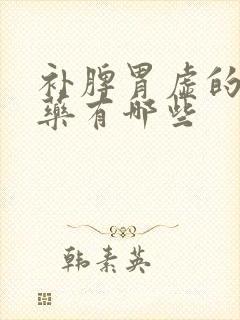 补脾胃虚的
藥有哪些
韩素英